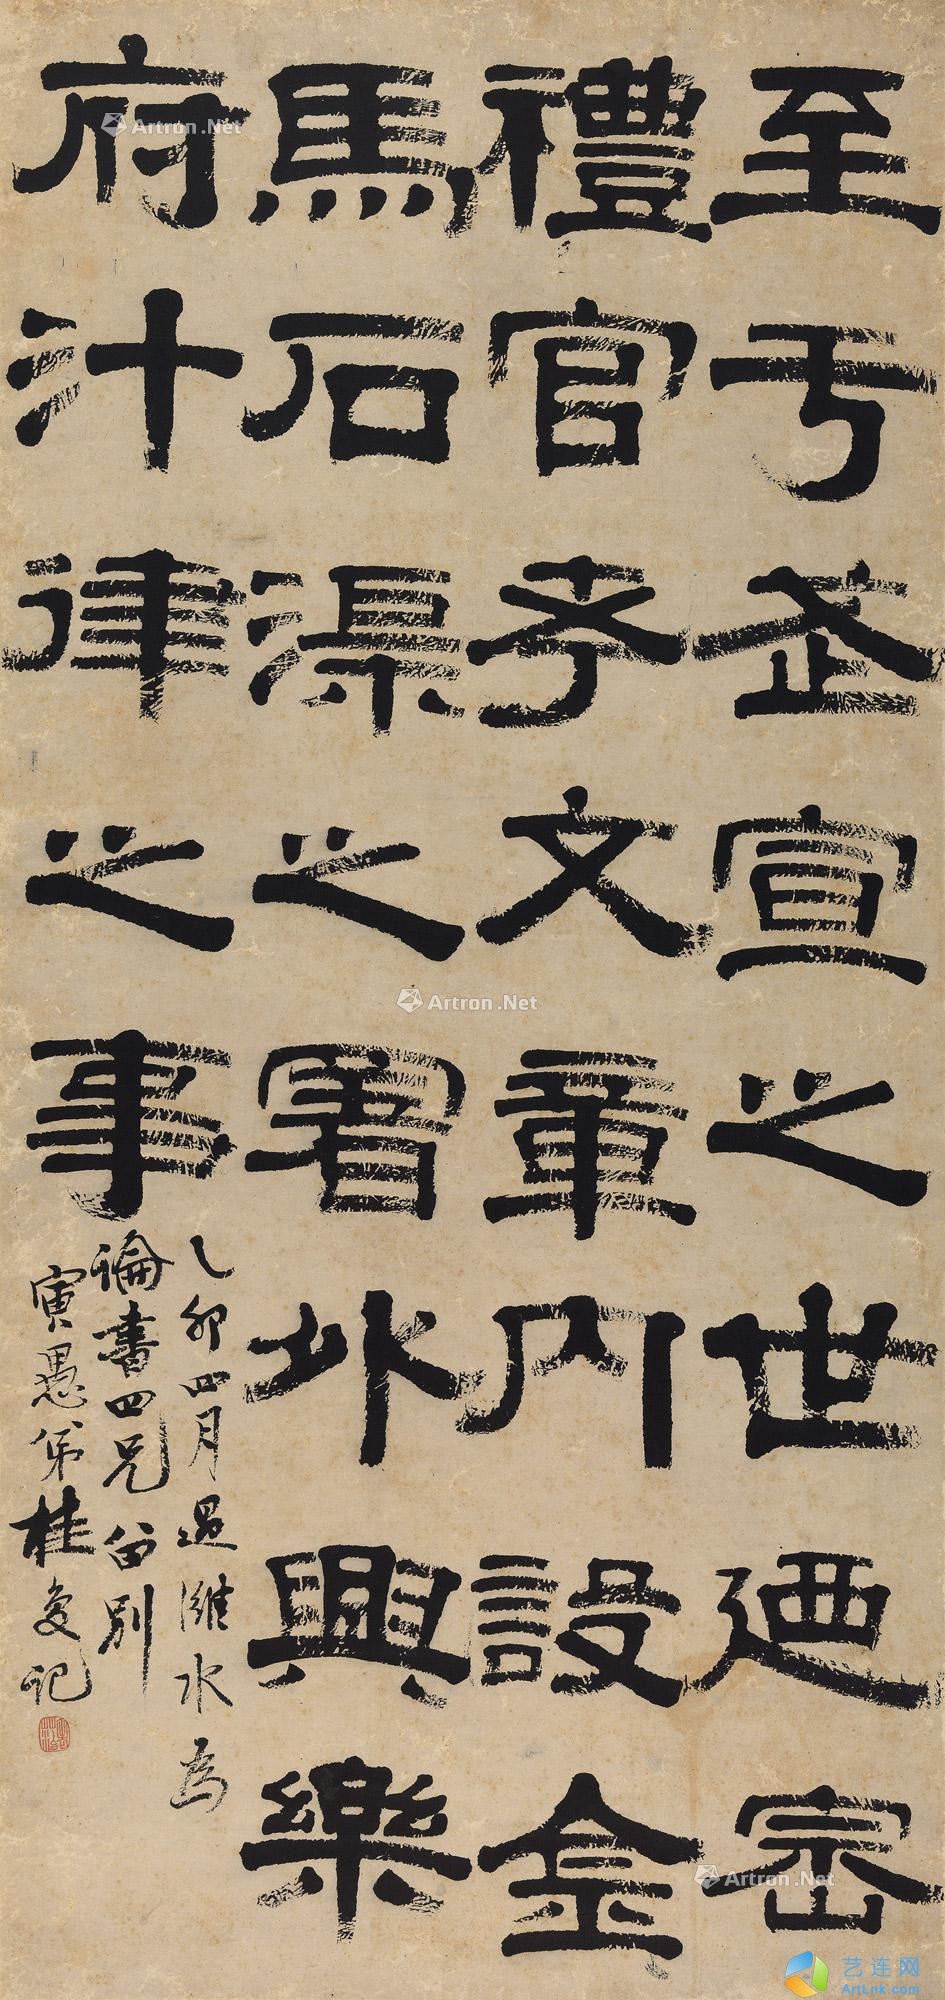 至亏武宣之世廼崈
禮官考文章內設金
馬石渠之署外興樂
府汁律之事
乙卯四月過濰水為
論書四兄留別
寅愚弟桂复記
Artron.Net
Artron.Net
Artron.Net
艺连网
ArtLnk.com